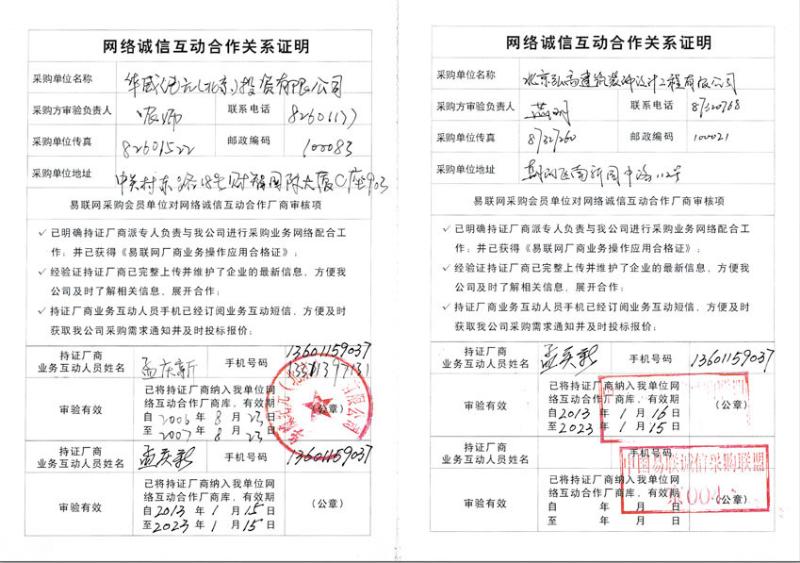 网络诚信互动合作关系证明
采购单位名称
投资有限公司
采购方审验负责人
联系电话 82601177
采购单位传真 82601522 邮政编码 100083
采购单位地址 中关村东路18号财智国际大厦C座903
易联网采购会员单位对网络诚信互动合作厂商审核项
✓ 已明确持证厂商派专人负责与我公司进行采购业务网络配合工
作；并已获得《易联网厂商业务操作应用合格证》；
✓ 经验证持证厂商已完整上传并维护了企业的最新信息，方便我
公司及时了解相关信息，展开合作；
✓ 持证厂商业务互动人员手机已经订阅业务互动短信，方便及时
获取我公司采购需求通知并及时投标报价；
13601159037
持证厂商
业务互动人员姓名 孟庆新 手机号码
审验有效
已将持证厂商纳入我单位网
络互动合作厂商库，有效期
自 2006 年 8 月 23 日
至 2007 年 8 月 23 日
（公章）
持证厂商
业务互动人员姓名 孟庆新 手机号码 13601159037
审验有效
已将持证厂商纳入我单位网
络互动合作厂商库，有效期
自 2013 年 1 月 15 日
至 2023 年 1 月 15 日
（公章）
网络诚信互动合作关系证明
采购单位名称 北京弘高建筑装饰设计工程有限公司
采购方审验负责人
联系电话
采购单位传真 邮政编码 100021
采购单位地址
易联网采购会员单位对网络诚信互动合作厂商审核项
✓ 已明确持证厂商派专人负责与我公司进行采购业务网络配合工
作；并已获得《易联网厂商业务操作应用合格证》；
✓ 经验证持证厂商已完整上传并维护了企业的最新信息，方便我
公司及时了解相关信息，展开合作；
✓ 持证厂商业务互动人员手机已经订阅业务互动短信，方便及时
获取我公司采购需求通知并及时投标报价；
持证厂商
业务互动人员姓名 孟庆新 手机号码 13601159037
审验有效
已将持证厂商纳入我单位网
络互动合作厂商库，有效期
自 2013 年 1 月 16 日
至 2023 年 1 月 15 日
（公章）
持证厂商
业务互动人员姓名
手机号码
中国易联诚信采购联盟
审验有效
已将持证厂商纳入我单位网
络互动合作厂商库，有效期
自 年 月 日
至 年 月 日
（公章）